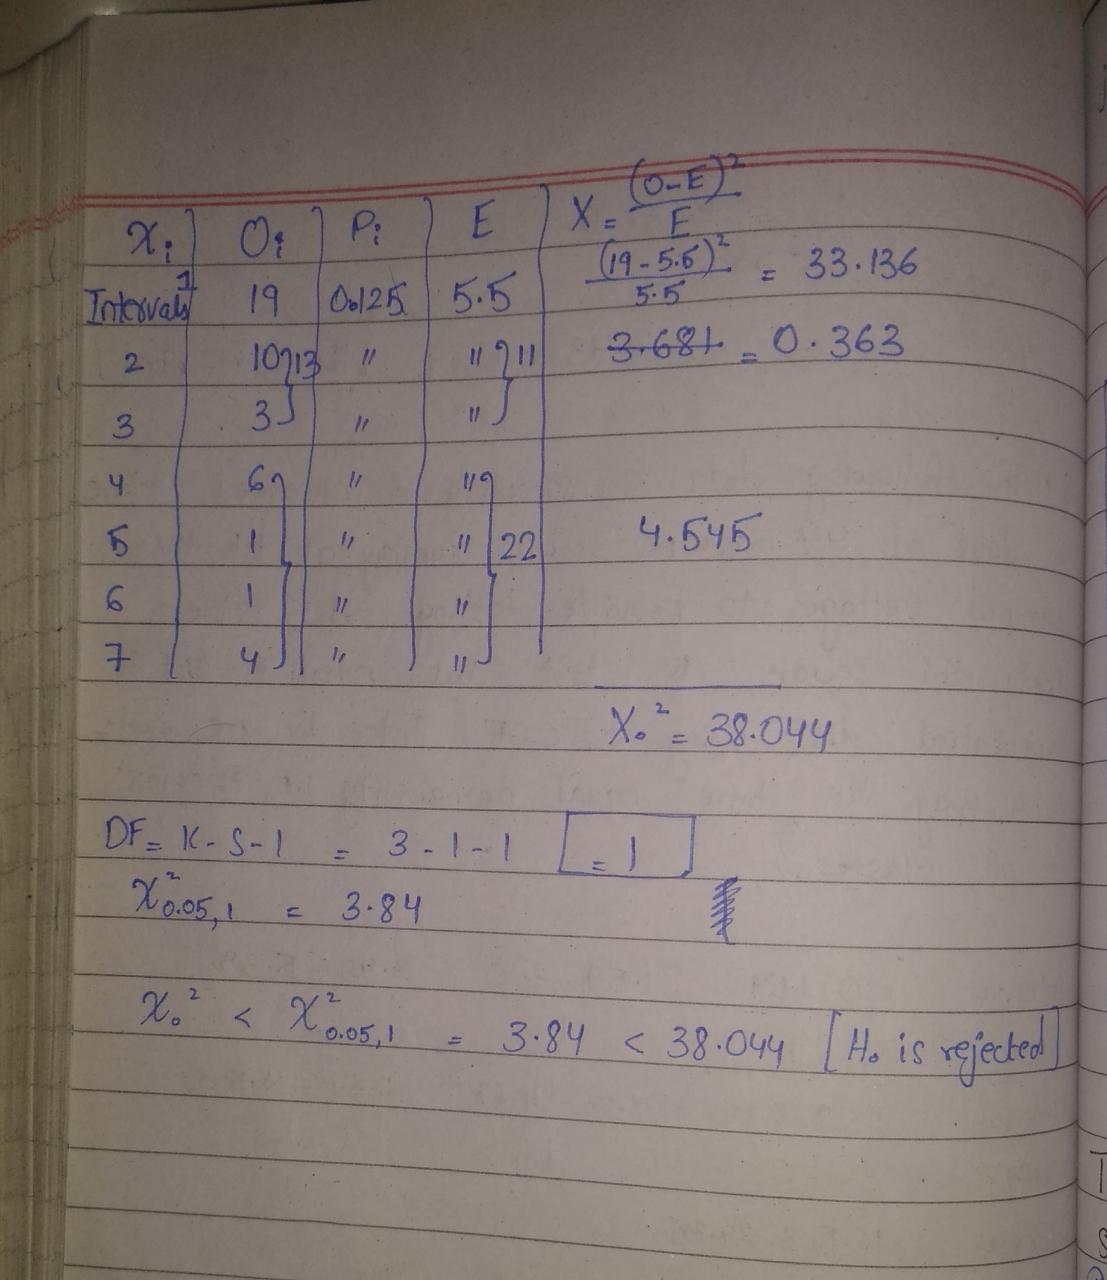 xᵢ Oᵢ Pᵢ E X = (O-E)² / E
Intervals 1 19 0.125 5.5 (19-5.5)² / 5.5 = 33.136
2 10 } 13 " " } 11 3.681 = 0.363
3 3 " "
4 6 " "
5 1 " " 22 4.545
6 1 " "
7 4 " "
X₀² = 38.044
DF = K-S-1 = 3-1-1 = 1
X²0.05,1 = 3.84
X₀² < X²0.05,1 = 3.84 < 38.044 [H₀ is rejected]